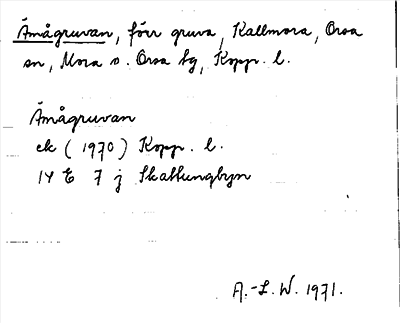 Åmågruvan, förr gruva, Kallmora, Orsa
sn, Mora o. Orsa tg, Kopp. l.
Åmågruvan
ek (1970) Kopp. l.
14 E 7 j Skattungbyn
A.-L. W. 1971.